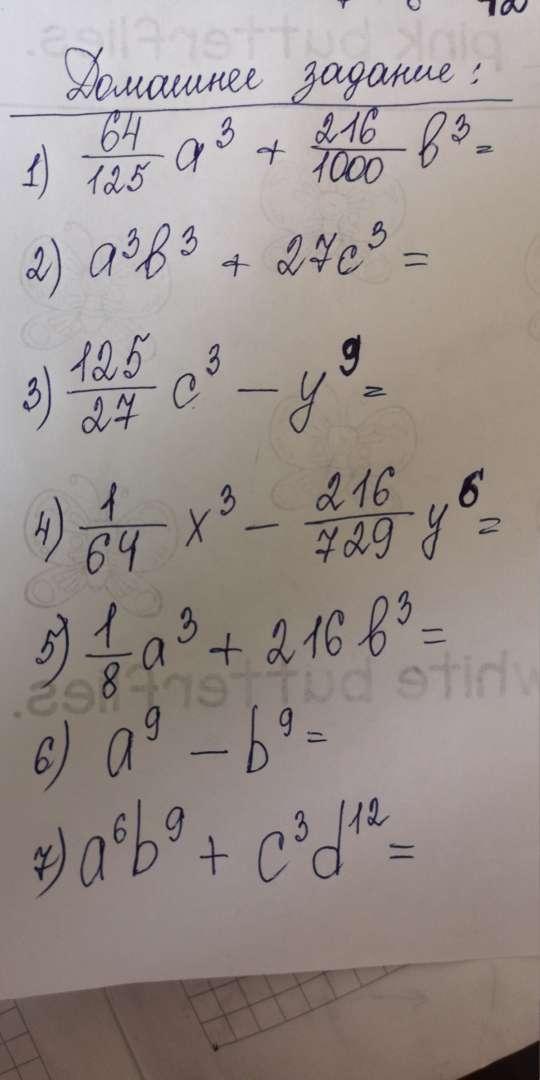 Домашнее задание:
1) 64/125 a³ + 216/1000 b³ =
2) a³b³ + 27c³ =
3) 125/27 c³ - y⁹ =
4) 1/64 x³ - 216/729 y⁶ =
5) 1/8 a³ + 216 b³ =
6) a⁹ - b⁹ =
7) a⁶b⁹ + c³d¹² =